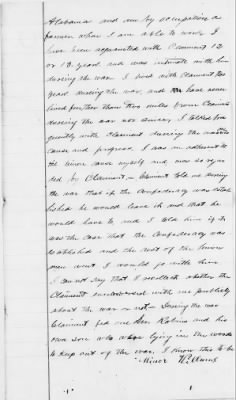 Alabama and am by occupation a
farmer when I am able to work I
have been acquainted with Claimant 12
or 13 years and was intimate with him
during the war. I lived with Claimant two
years during the war, and have never
lived further than two miles from Claimant
during the war nor since, I talked fre
quently with Claimant during the war its
cause and progress. I was an adherent to
the Union cause myself and was so regar
ded by Claimant - Claimant told me during
the war that if the Confederacy was estab
lished he would leave it and that he
would have to and I told him if it
was the case that the Confederacy was
established and the rest of the Union
men went I would go with him
I can not say that I recollect whether the
Claimant conversed with me publicly
about the war or not - During the war
Claimant fed me Robins and his
own son who were lying in the woods
to keep out of the war. I know this to be
Minor